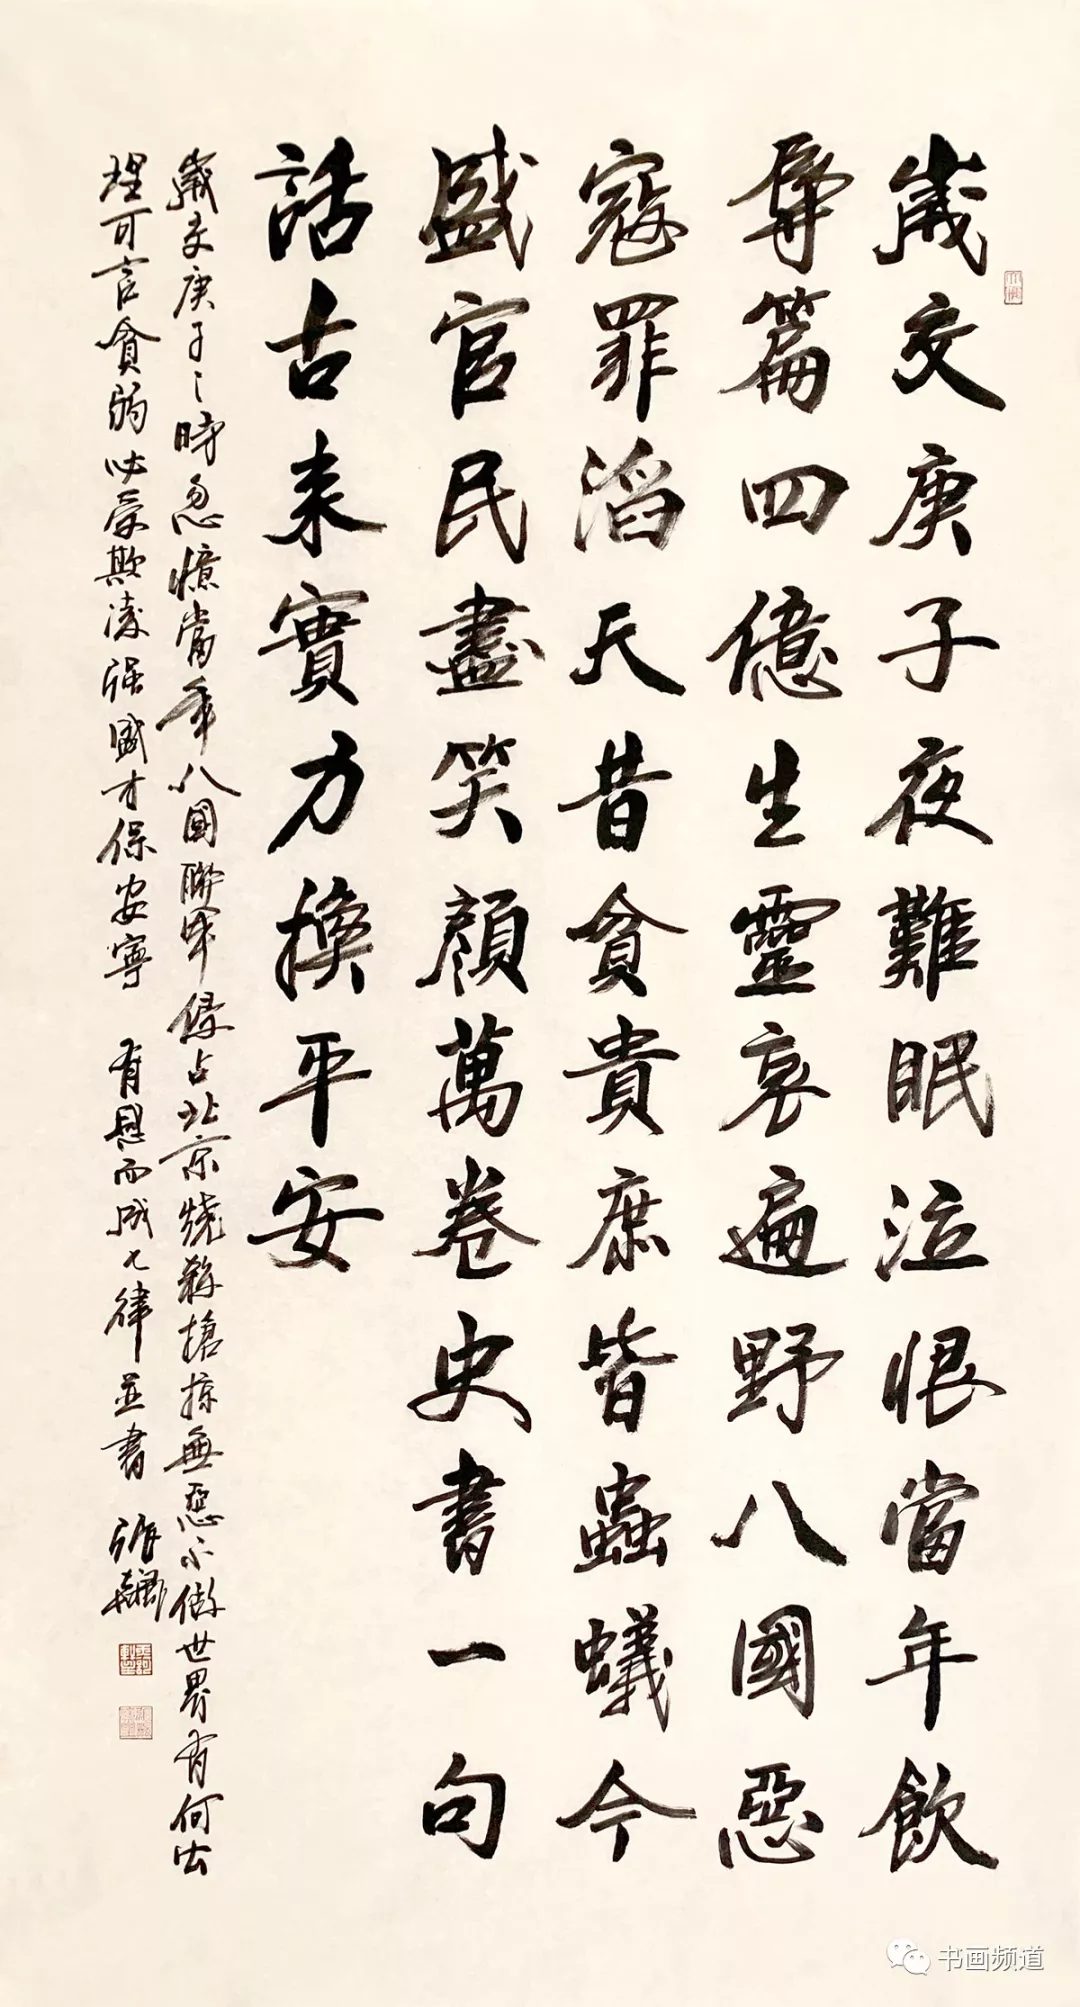 歲交庚子夜難眠泣恨當年飲
辱篇四億生靈哀遍野八國惡
寇罪滔天昔貧貴庶皆蟲蟻今
盛官民盡笑顏萬卷史書一句
話古來實力換平安
歲交庚子之時忽憶當年八國聯軍侵占北京燒殺搶掠無惡不做世界有何公
理可言貧弱必受欺凌強盛才保安寧 有思而成七律並書 張飆
书画频道